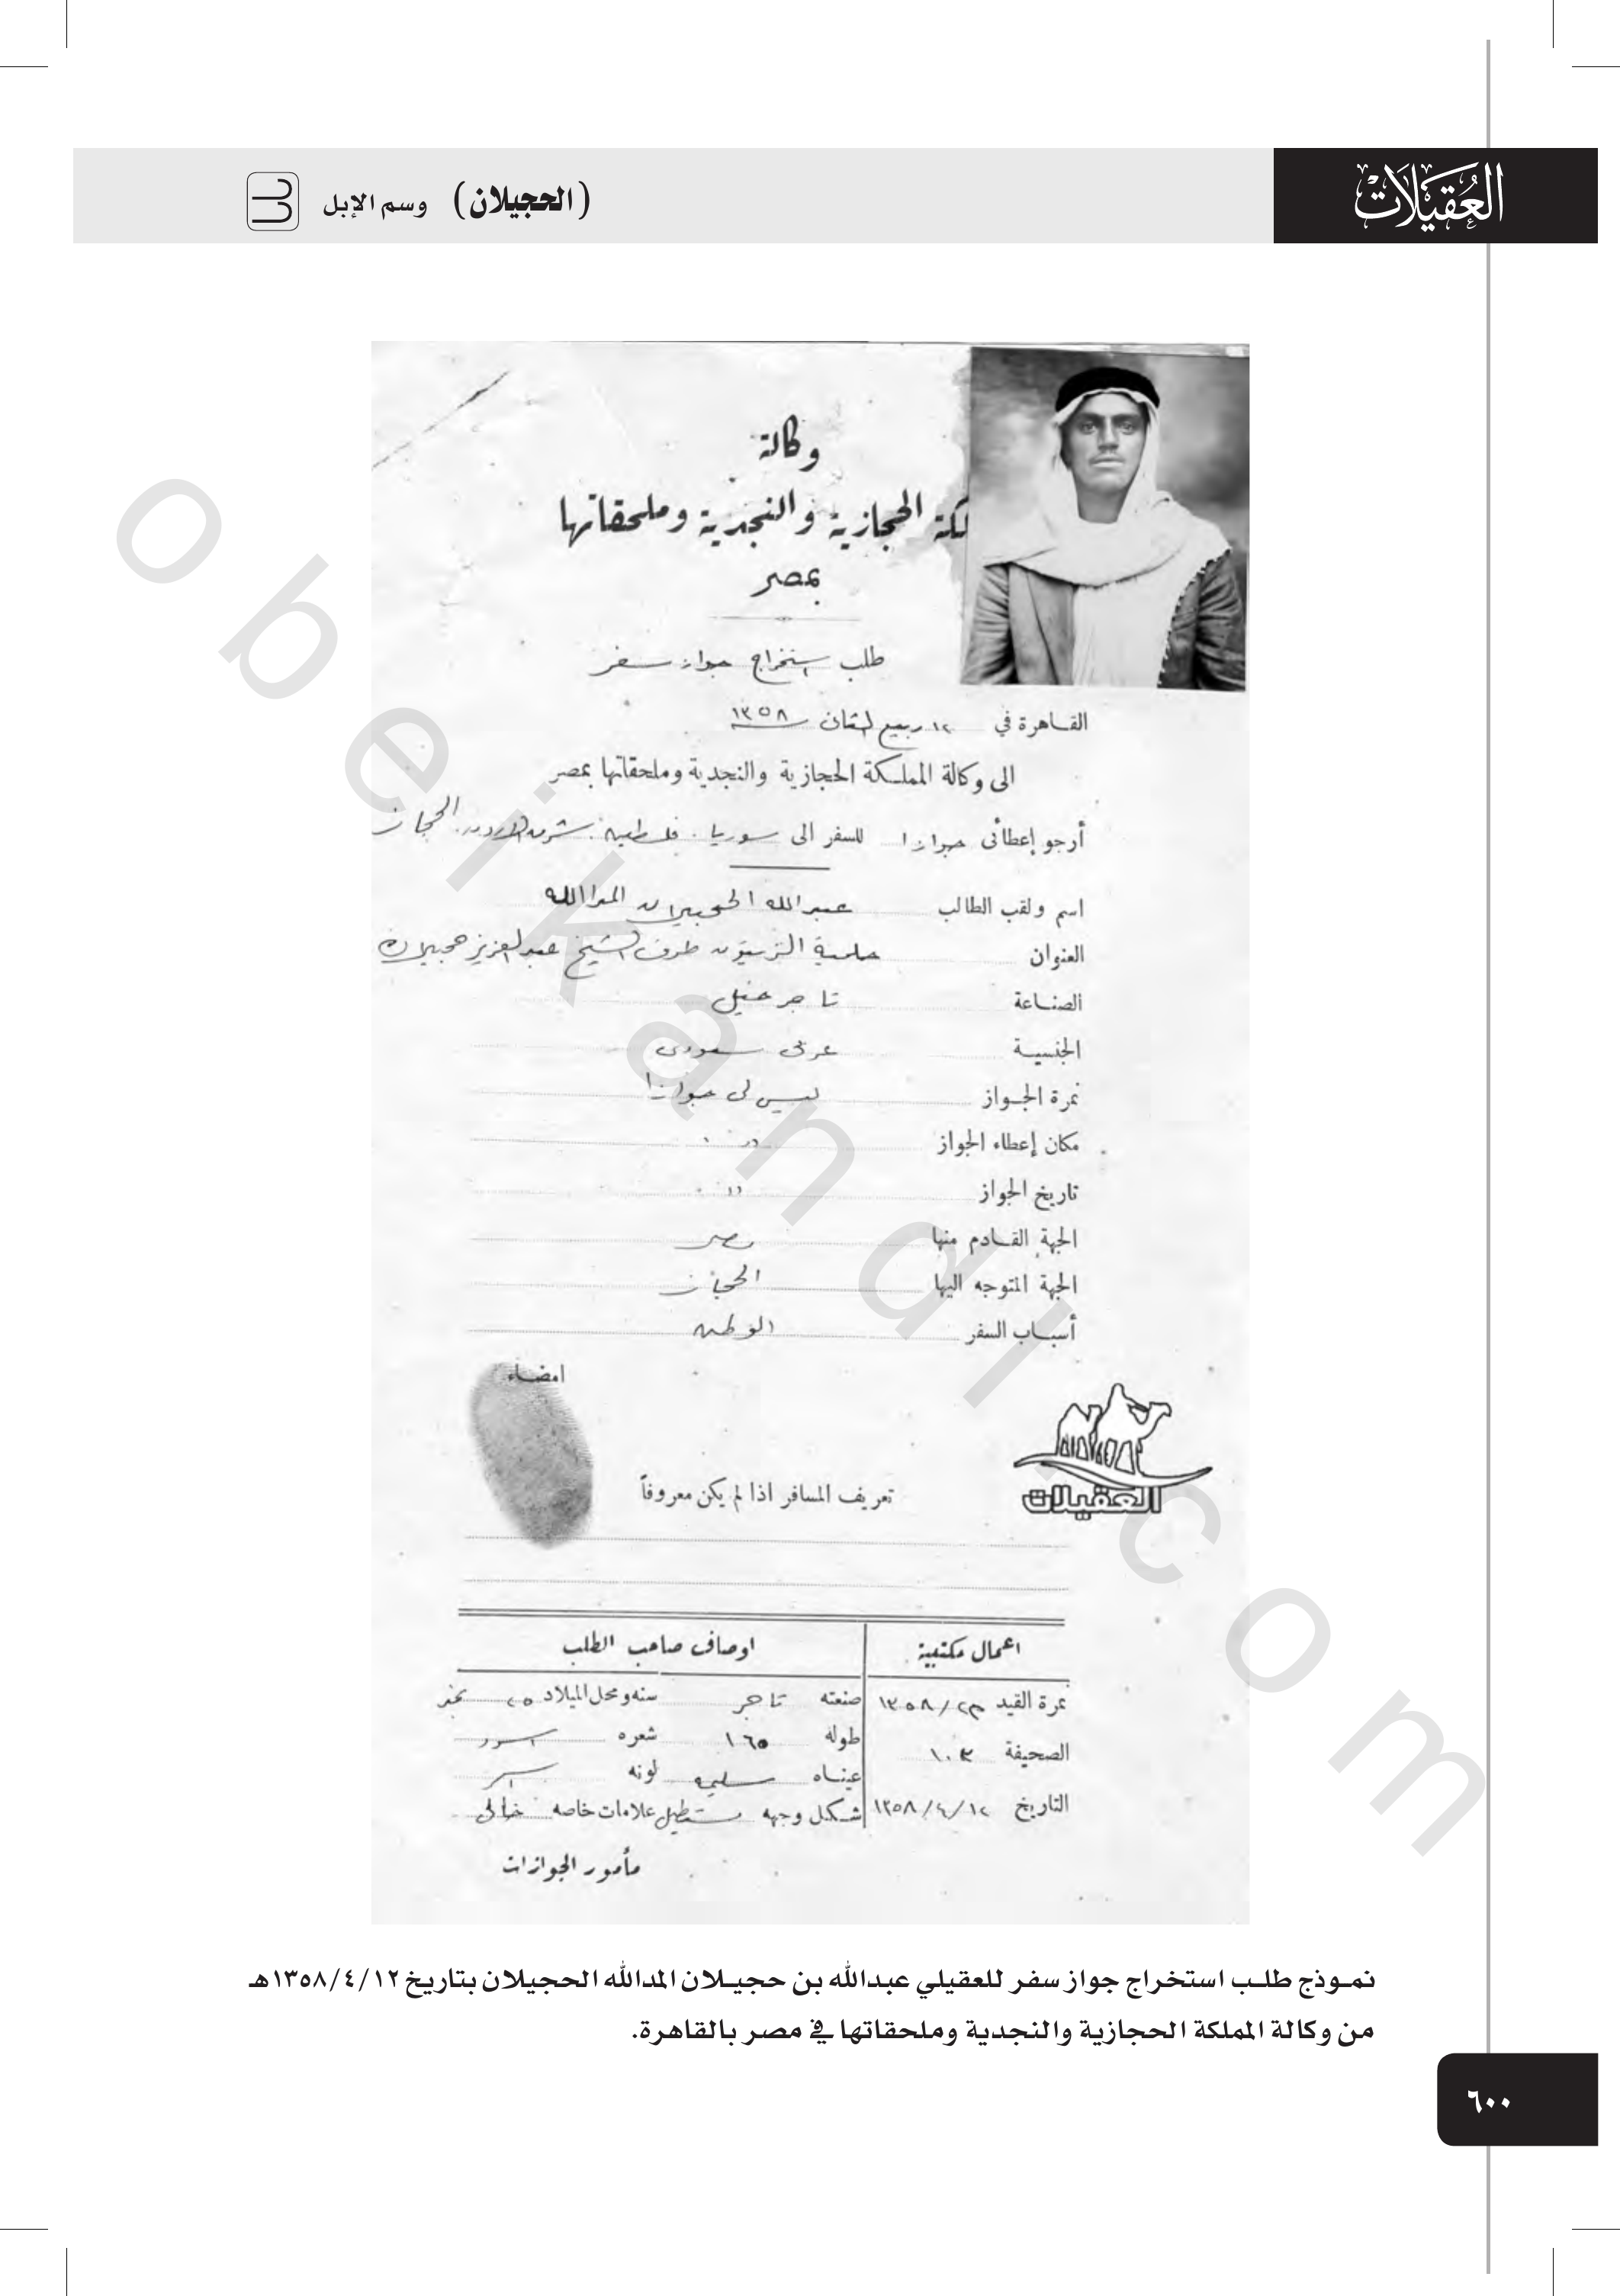 العُقيلات
(الحجيلان) وسم الإبل
وكالة
لكة الحجازية والنجدية وملحقاتها
بمصر
طلب استخراج جواز سفر
القاهرة في ١٢ ربيع الثان ١٣٥٨
الى وكالة المملكة الحجازية والنجدية وملحقاتها بمصر
أرجو إعطائى جوازا للسفر الى سوريا . فلسطين . شرق الاردن . الحجاز
اسم ولقب الطالب عبد الله الحجيلان المدالله
العنوان حلمية الزيتون طرف الشيخ عبد العزيز حجيلان
الصناعة تاجر خيل
الجنسية عربى سعودى
نمرة الجواز ليس لى جوازا
مكان إعطاء الجواز
تاريخ الجواز
الجهة القادم منها مصر
الجهة المتوجه اليها الحجاز
أسباب السفر الوطن
امضاء
تعريف المسافر اذا لم يكن معروفاً
العقيلات
اعمال مكتبية
نمرة القيد ١٣٥٨/٢٣
الصحيفة ١٠٣
التاريخ ١٣٥٨/٤/١٢
اوصاف صاحب الطلب
صنعته تاجر سنه ومحل الميلاد ٢٥ بنجد
طوله ١٦٥ شعره اسود
عيناه سليمه لونه اسمر
شكل وجهه مستطيل علامات خاصه خالى
مأمور الجوازات
نموذج طلب استخراج جواز سفر للعقيلي عبدالله بن حجيلان المدالله الحجيلان بتاريخ ١٣٥٨/٤/١٢هـ
من وكالة المملكة الحجازية والنجدية وملحقاتها في مصر بالقاهرة.
٦٠٠
obeikandl.com